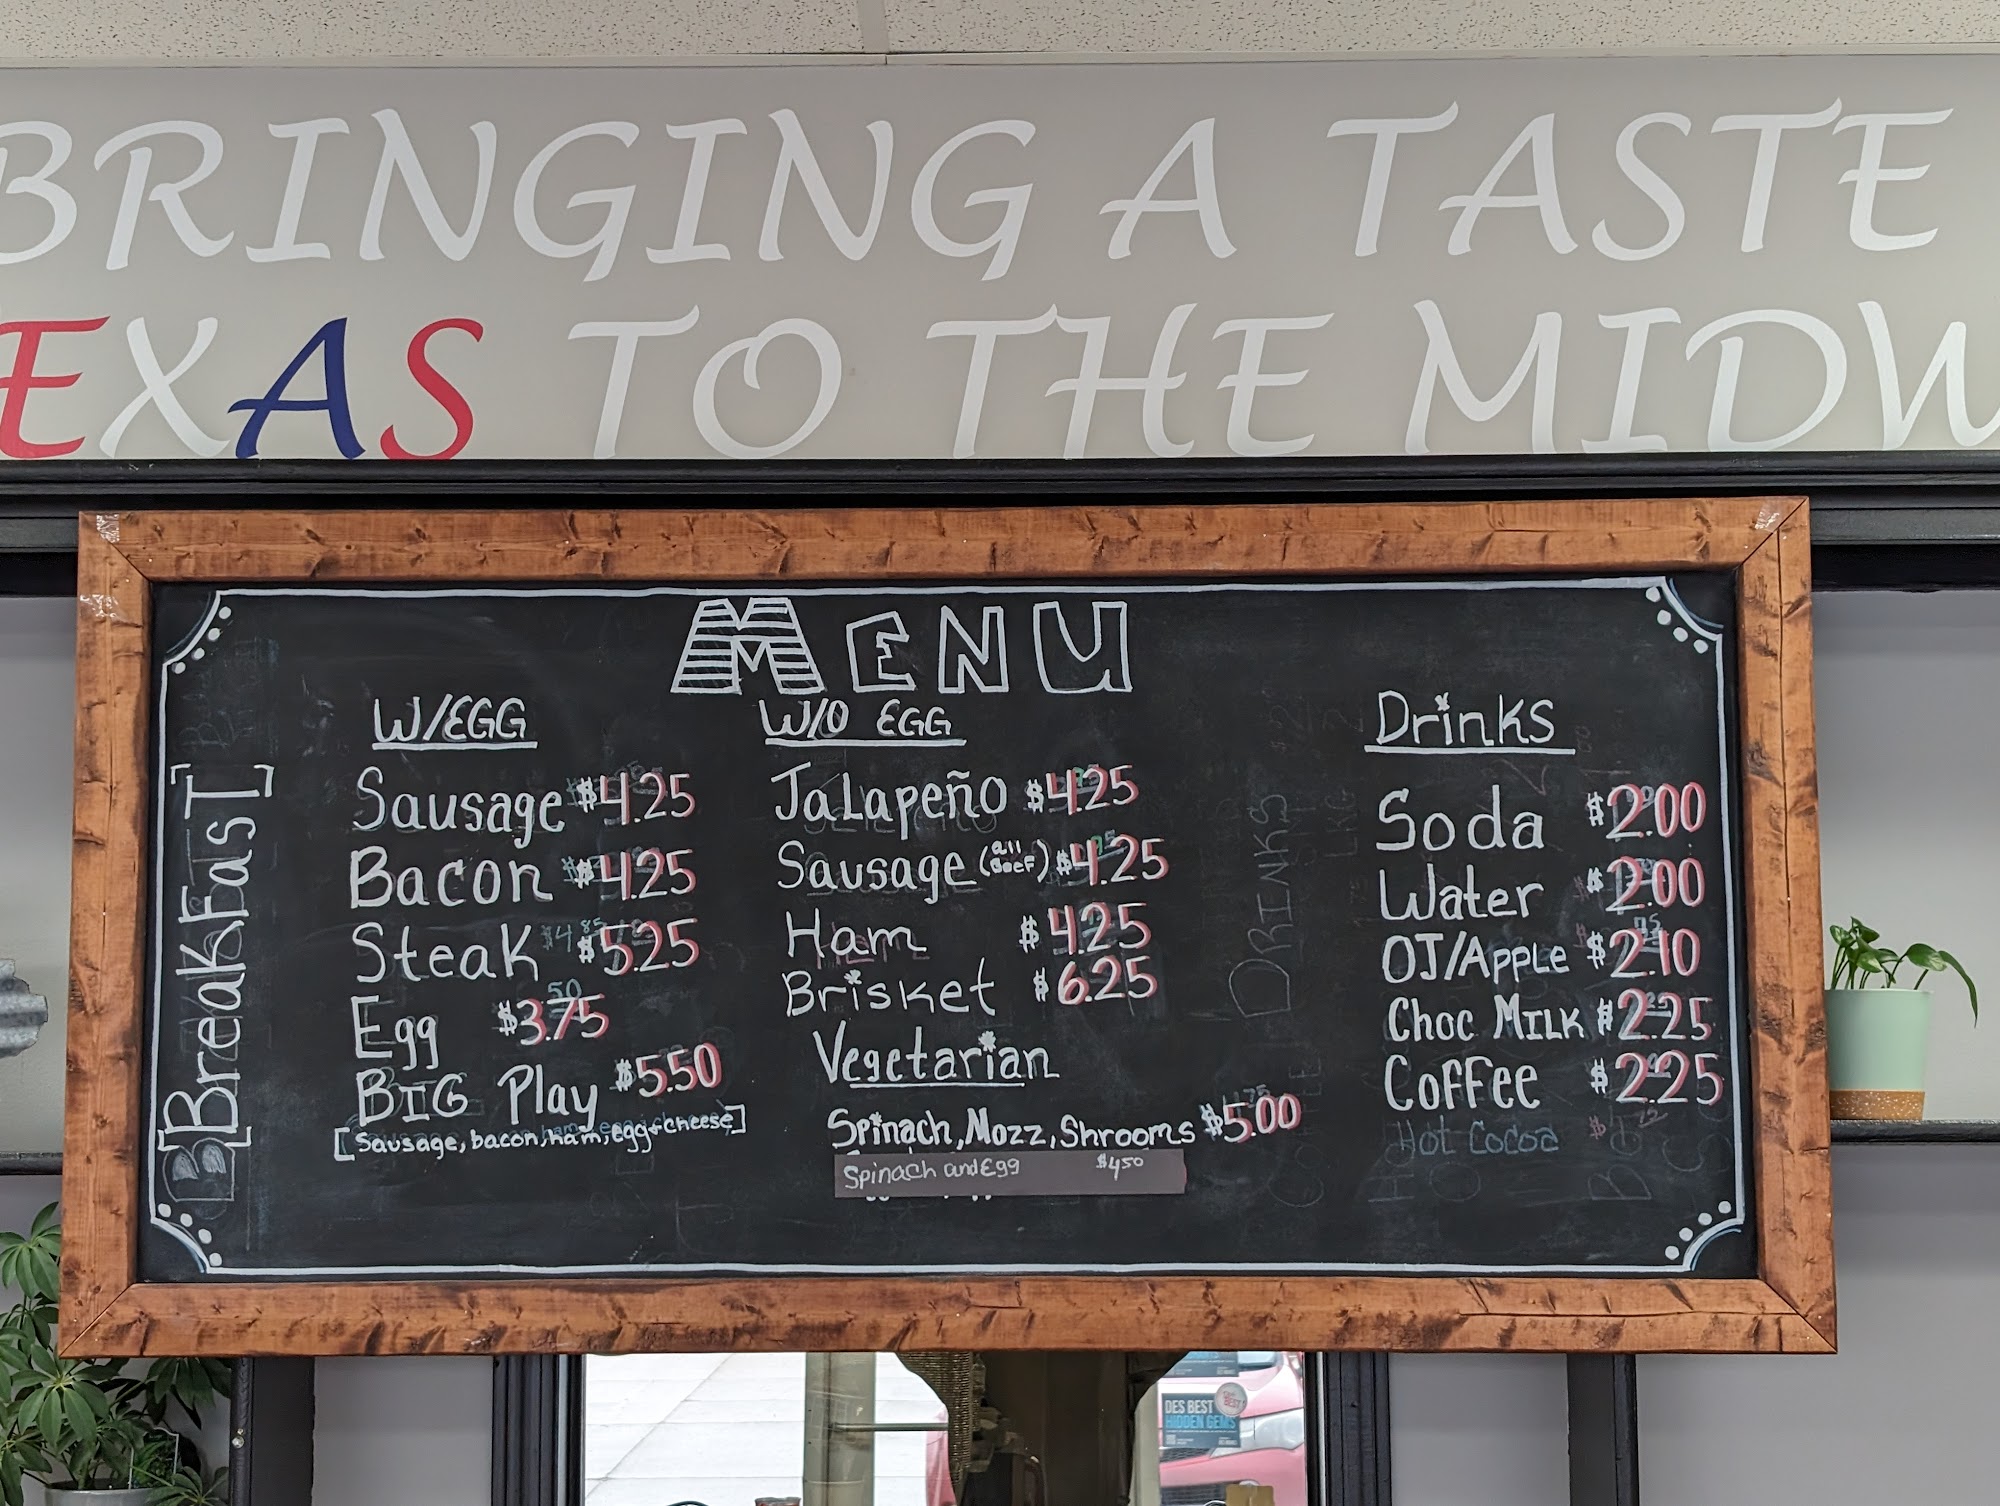 BRINGING A TASTE
EXAS TO THE MIDW
MENU
[BreakFasT]
W/EGG
Sausage $4.25
Bacon $4.25
Steak $5.25
Egg $3.75
BIG Play $5.50
[Sausage, bacon, ham, egg+cheese]
W/O EGG
JaLapeño $4.25
Sausage (all Beef) $4.25
Ham $4.25
Brisket $6.25
Vegetarian
Spinach, Mozz, Shrooms $5.00
Spinach and Egg $4.50
Drinks
Soda $2.00
Water $2.00
OJ/Apple $2.10
Choc MILK $2.25
Coffee $2.25
Hot Cocoa
DRINKS
DES BEST
HIDDEN GEMS